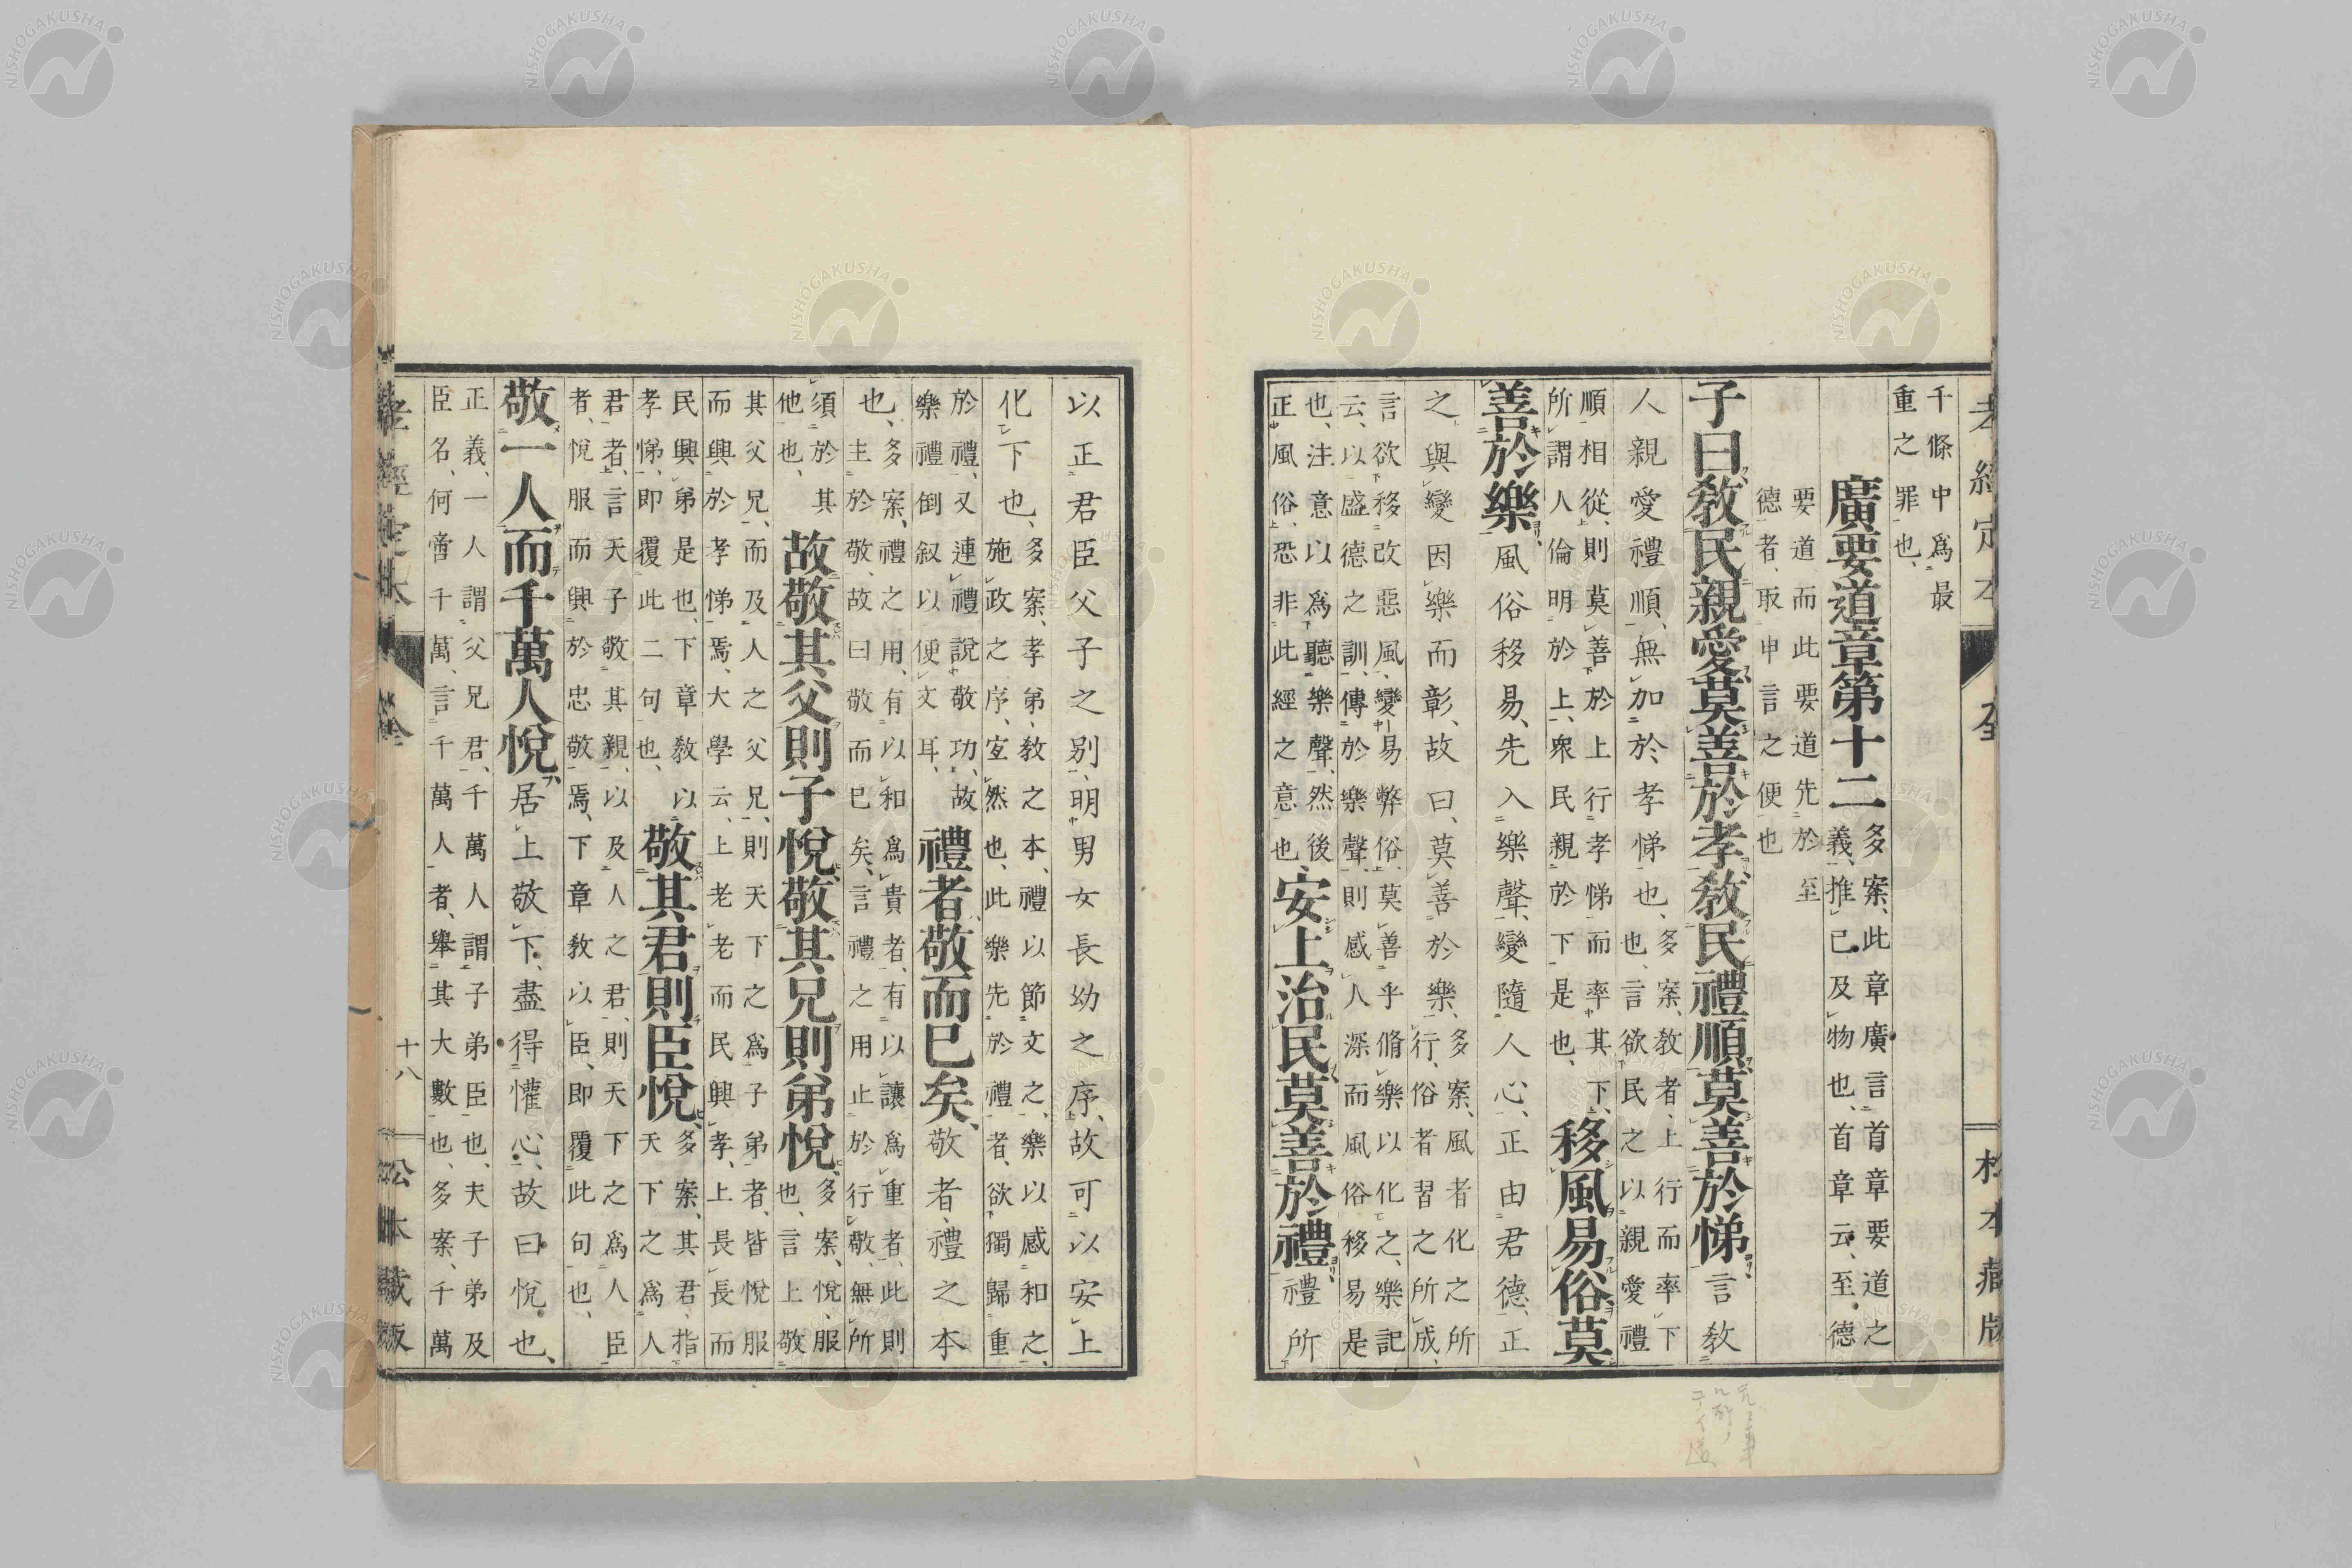 千條中爲最
重之罪也、
廣要道章第十二
多案、此章廣言首章要道之
義、推已及物也、首章云、至德
要道而此要道先於至
德者、取申言之便也
子曰、敎民親愛莫善於孝、敎民禮順莫善於悌、言敎
人親愛禮順、無加於孝悌也、
多案、敎者、上行而率下
也、言欲民之以親愛禮
順相從、則莫善於上行孝悌而率其下、
所謂人倫明於上、衆民親於下是也、
移風易俗莫
善於樂、風俗移易、先入樂聲、變隨人心、正由君德、正
之與變因樂而彰、故曰、莫善於樂、
多案、風者化之所
行、俗者習之所成、
言欲移改惡風、變易弊俗、莫善乎脩樂以化之、樂記
云、以盛德之訓、傳於樂聲、則感人深而風俗移易是
也、注意以爲聽樂聲、然後
正風俗、恐非此經之意也、
安上治民莫善於禮、禮所
以正君臣父子之別、明男女長幼之序、故可以安上
化下也、
多案、孝弟、敎之本、禮以節文之、樂以感和之、
施政之序、宜然也、此樂先於禮者、欲獨歸重
於禮、又連禮說敬功、故
樂禮倒叙以便文耳、
禮者敬而已矣、敬者、禮之本
也、
多案、禮之用、有以和爲貴者、有以讓爲重者、此則
主於敬、故曰敬而已矣、言禮之用止於行敬、無所
須於其
他也、
故敬其父則子悅、敬其兄則弟悅、
多案、悅、服
也、言上敬
其父兄、而及人之父兄、則天下之爲子弟者、皆悅服
而興於孝悌焉、大學云、上老老而民興孝、上長長而
民興弟是也、下章敎以
孝悌、即覆此二句也、
敬其君則臣悅、
多案、其君、指
天下之爲人
君者、言天子敬其親、以及人之君、則天下之爲人臣
者、悅服而興於忠敬焉、下章敎以臣、即覆此句也、
敬一人而千萬人悅、居上敬下、盡得懽心、故曰悅也、
正義、一人謂父兄君、千萬人謂子弟臣也、夫子弟及
臣名、何啻千萬、言千萬人者、舉其大數也、多案、千萬
孝經定本 全 十八 松本藏版